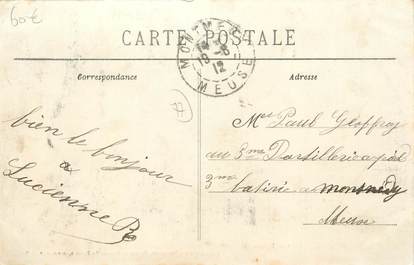 60€
CARTE POSTALE
MONTMÉDY
18-8
12
MEUSE
Correspondance
Adresse
bien le bonjour
a
Lucienne B
Mr Paul Geoffroy
au 5me D'artillerie a pied
3me batirie a montmédy
Meuse